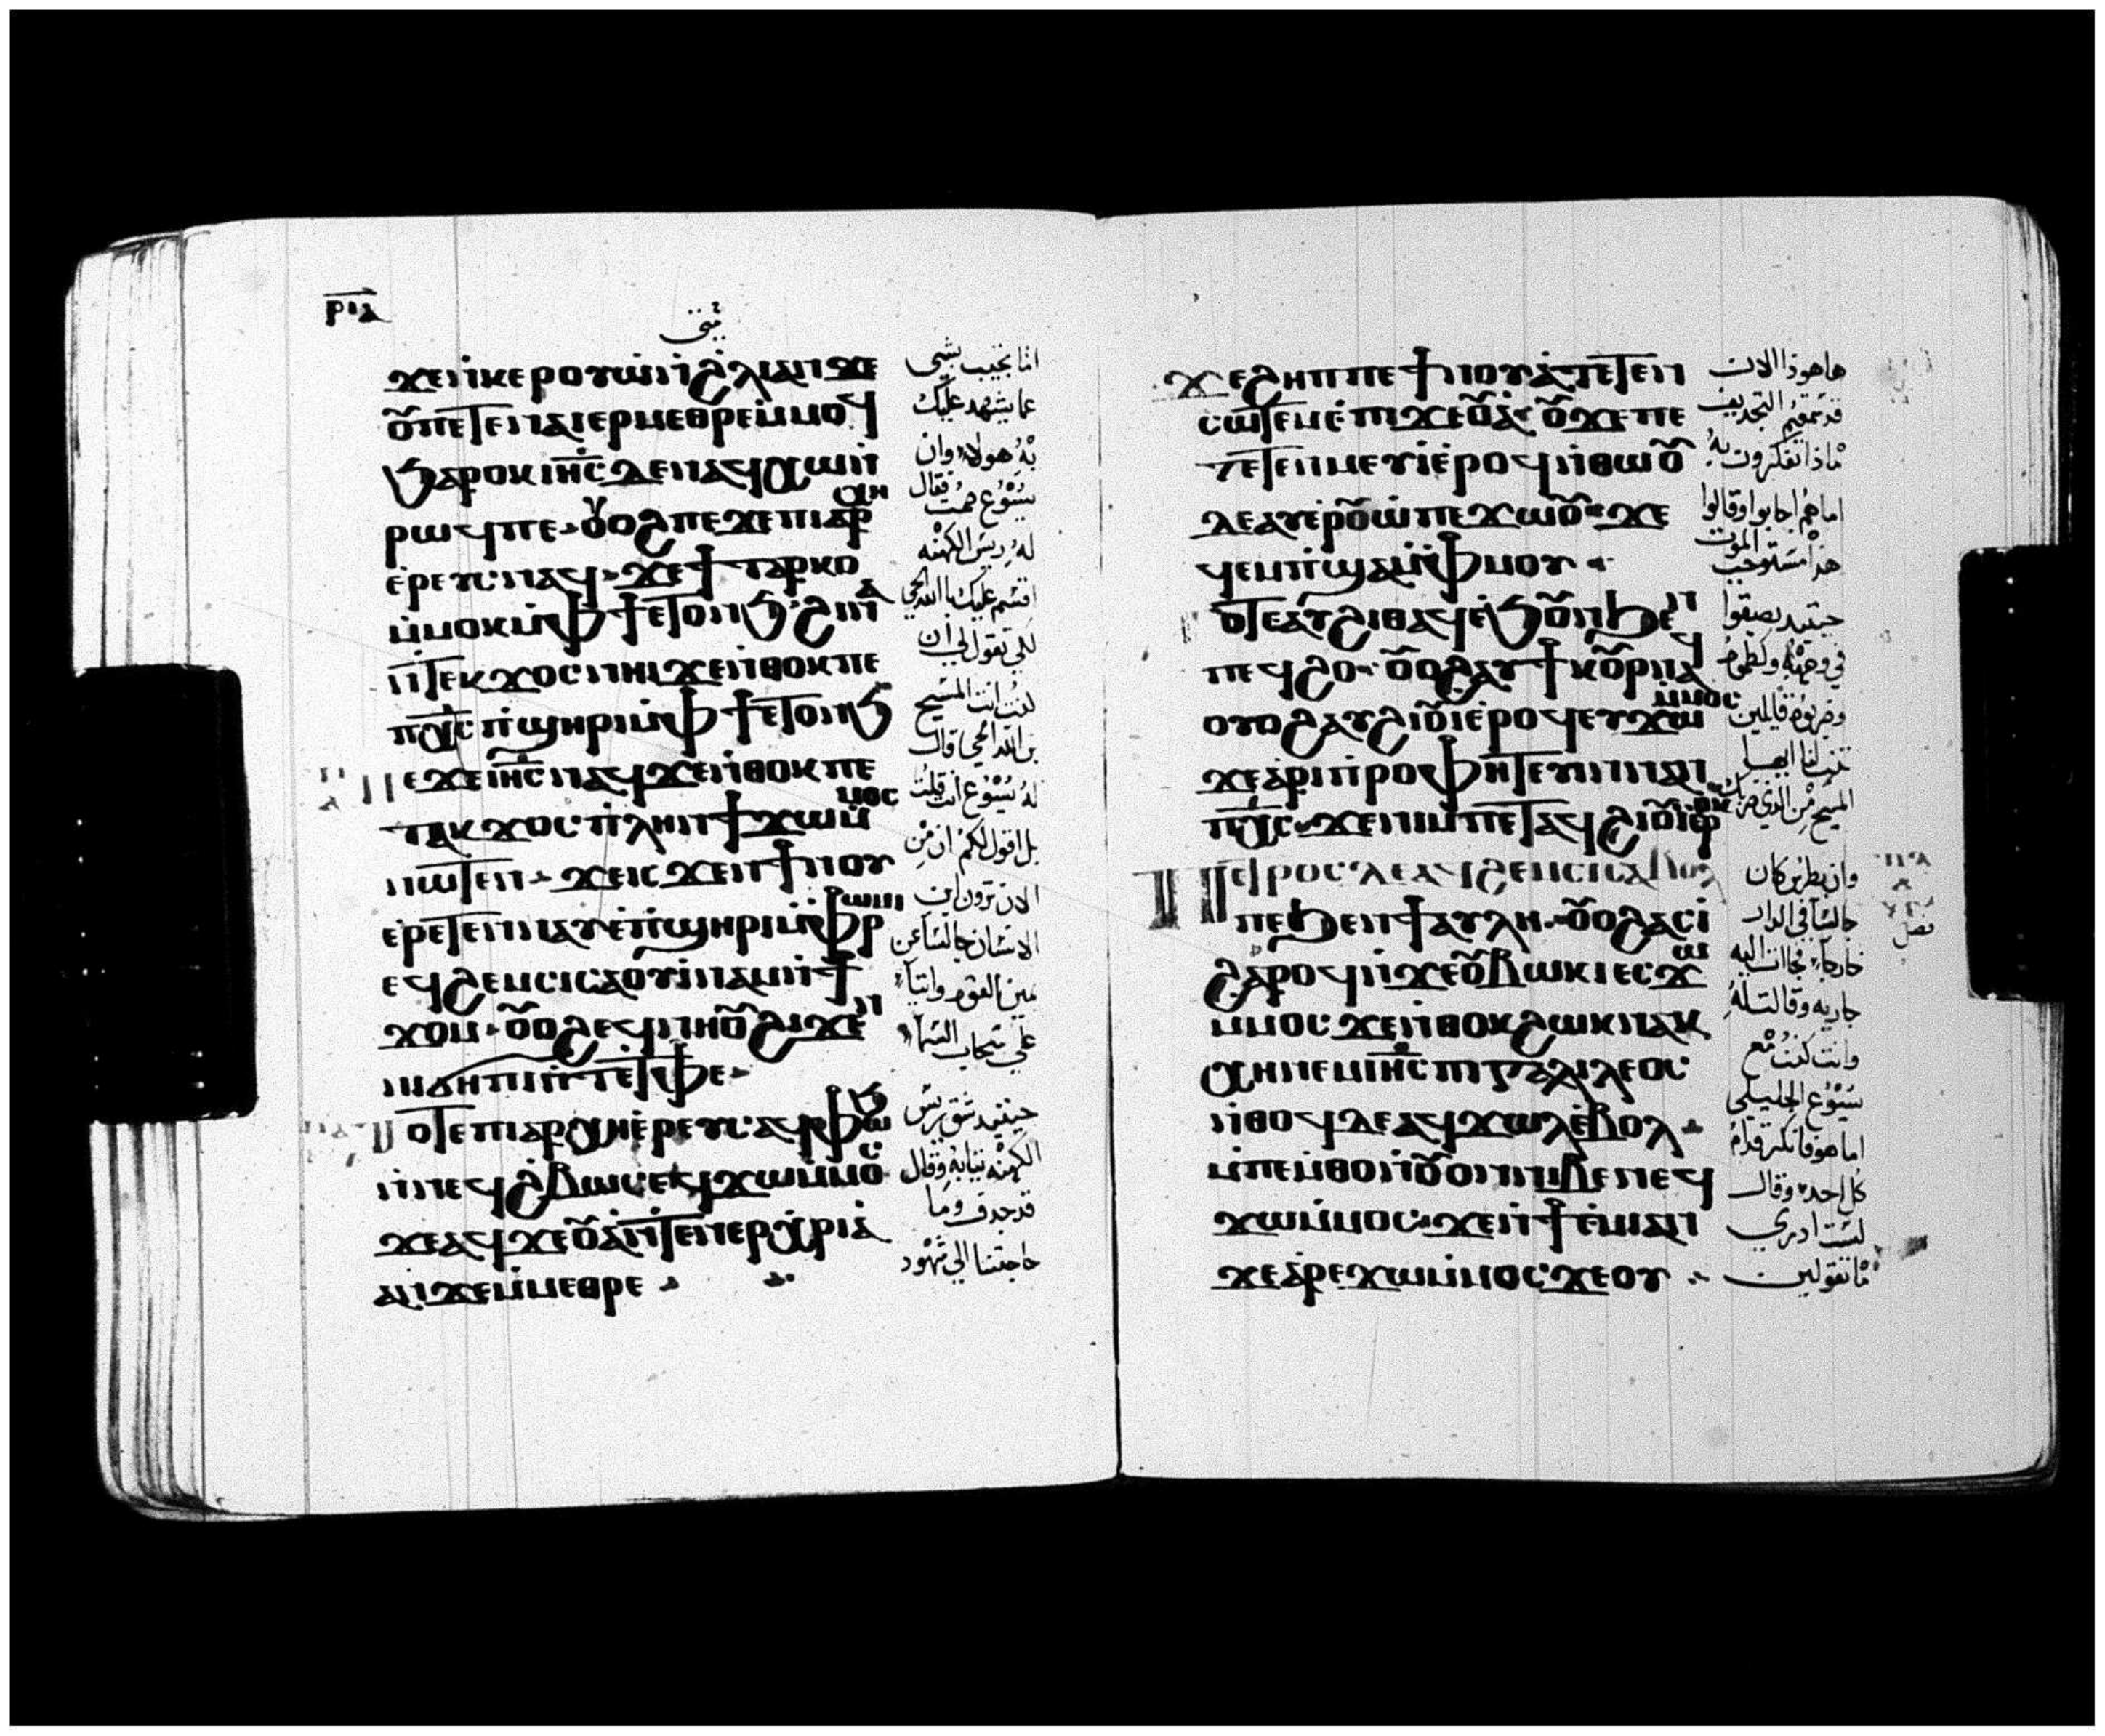 ⲣⲓⲁ
ϫⲉⲛ̇ⲕⲉⲣⲟⲩⲱ̇ⲛ̇ϩ̇ⲗⲓⲁⲛϫⲉ
ⲟⲩ̅ⲡⲉⲧⲉⲛⲁⲓⲉⲣⲙⲉⲑⲣⲉⲙ̇ⲙⲟϥ
ϧⲁⲣⲟⲕⲓⲏ̅ⲥ̅ⲇⲉⲛⲁϥⲭⲱⲛ̇
ⲣⲱϥⲡⲉ ⲟⲩⲟϩⲡⲉϫⲉⲡⲓⲁⲣⲭⲏ
ⲉ̇ⲣⲉⲩⲥⲛⲁϥ ϫⲉϯⲧⲁⲣⲕⲟ
ⲙ̇ⲙⲟⲕⲙ̇ⲫϯⲉⲧⲟⲛϧϩⲓⲛⲁ
ⲛ̇ⲧⲉⲕϫⲟⲥⲛⲏⲓϫⲉⲛ̇ⲑⲟⲕⲡⲉ
ⲡⲭ̅ⲥ̅ⲡ̇ϣⲏⲣⲓⲙ̇ⲫϯⲉⲧⲟⲛϧ
ⲡⲉϫⲉⲓⲏ̅ⲥ̅ⲛⲁϥϫⲉⲛ̇ⲑⲟⲕⲡⲉ
ⲧⲁⲕϫⲟⲥ ⲡ̇ⲗⲏⲛϯϫⲱⲙ̇ⲙⲟⲥ
ⲛⲱⲧⲉⲛ ϫⲉⲓⲥϫⲉⲛϯⲛⲟⲩ
ⲉ̇ⲣⲉⲧⲉⲛⲛⲁⲩⲉ̇ⲡ̇ϣⲏⲣⲓⲙ̇ⲫⲣⲱⲙⲓ
ⲉϥϩⲉⲙⲥⲓⲥⲁⲟⲩⲓ̇ⲛⲁⲙⲛ̇ϯ
ϫⲟⲙ ⲟⲩⲟϩⲉϥⲛⲏⲟⲩϩⲓϫⲉⲛ
ⲛⲓϭⲏⲡⲓⲛ̇ⲧⲉⲧ̇ⲫⲉ
ⲧⲟⲧⲉⲡⲓⲁⲣⲭⲏⲉ̇ⲣⲉⲩⲥⲁϥⲫⲱϧ
ⲛ̇ⲛⲉϥϩ̇ⲃⲱⲥⲉϥϫⲱⲙ̇ⲙⲟⲥ
ϫⲉⲁϥϫⲉⲟⲩⲁ̇ⲛ̇ⲧⲉⲛⲉⲣⲭ̇ⲣⲓⲁ̇
ⲁⲛϫⲉⲙ̇ⲙⲉⲑⲣⲉ
اما تجيب بشي
عما يشهد عليك
به هولاء وان
يسوع صمت فقال
له ريس الكهنه
اقسم عليك بالله الحي
لكي تقول لي ان
كنت انت المسيح
بن الله الحي قال
له يسوع انت قلت
بل اقول لكم ان من
الان ترون ابن
الانسان جالسا عن
يمين القوه واتيا
علي سحاب السما
حينيد شق ريس
الكهنه تيابه وقال
قد جدف وما
حاجتنا الي شهود
ϫⲉϩⲏⲡⲡⲉϯⲛⲟⲩⲁ̇ⲧⲉⲧⲉⲛ
ⲥⲱⲧⲉⲙⲉ̇ⲡⲓϫⲉⲟⲩⲁ̇ ⲟⲩϫⲉⲡⲉ
ⲧⲉⲧⲉⲛⲙⲉⲩⲓ̇ⲉ̇ⲣⲟϥⲛ̇ⲑⲱⲟⲩ
ⲇⲉⲁⲩⲉⲣⲟⲩⲱ̇ⲡⲉϫⲱⲟⲩ ϫⲉ
ϥⲉⲙⲡ̇ϣⲁⲙ̇ⲫⲙⲟⲩ
ⲧⲟⲧⲉⲁⲩϩⲓⲑⲁϥⲉ̇ϧⲟⲩⲛϧⲉⲛ
ⲡⲉϥϩⲟ ⲟⲩⲟϩⲁⲩϯⲕⲟⲩⲣⲛⲁϥ
ⲟⲩⲟϩⲁⲩϩⲓⲟⲩⲓ̇ⲉ̇ⲣⲟϥⲉⲩϫⲱⲙ̇ⲙⲟⲥ
ϫⲉⲁ̇ⲣⲓⲡ̇ⲣⲟⲫⲏⲧⲉⲩⲓⲛⲛⲁⲛ
ⲡⲭ̅ⲥ̅ ϫⲉⲛⲓⲙⲡⲉⲧⲁϥϩⲓⲟⲩⲓ̇ⲉ̇ⲣⲟⲕ
ⲡⲉⲧⲣⲟⲥⲇⲉⲁϥϩⲉⲙⲥⲓⲥⲁⲃⲟⲗ
ⲡⲉϧⲉⲛϯⲁⲩⲗⲏ ⲟⲩⲟϩⲁⲥⲓ̇
ϩⲁⲣⲟϥⲛ̇ϫⲉⲟⲩⲃⲱⲕⲓⲉⲥϫⲱ
ⲙ̇ⲙⲟⲥ ϫⲉⲛ̇ⲑⲟⲕϩⲱⲕⲛⲁⲕ
ⲭⲏⲛⲉⲙⲓⲏ̅ⲥ̅ⲡⲓⲅⲁⲗⲓⲗⲉⲟⲥ
ⲛ̇ⲑⲟϥⲇⲉⲁϥϫⲱⲗⲉ̇ⲃⲟⲗ
ⲙ̇ⲡⲉⲙ̇ⲑⲟⲛ̇ⲟⲩⲟⲛⲛⲓⲃⲉⲛⲉϥ
ϫⲱⲙ̇ⲙⲟⲥ ϫⲉⲛ̇ϯⲉ̇ⲙⲓⲁⲛ
ϫⲉⲁ̇ⲣⲉϫⲱⲙ̇ⲙⲟⲥϫⲉⲟⲩ
هاهوذا الان
قد سمعتم التجديف
ماذا تفكرون به
اما هم اجابوا وقالوا
هذا مستوجب الموت
حينيد بصقوا
في وجهه ولطموه
وضربوه قايلين
تنبا لنا ايها
المسيح من الذي ضربك
وان بطرس كان
جالسا في الدار
خارجا فجاات اليه
جاريه وقالت له
وانت كنت مع
يسوع الجليلي
اما هو فانكر قدام
كل احد وقال
لست ادري
ما تقولين
فصل